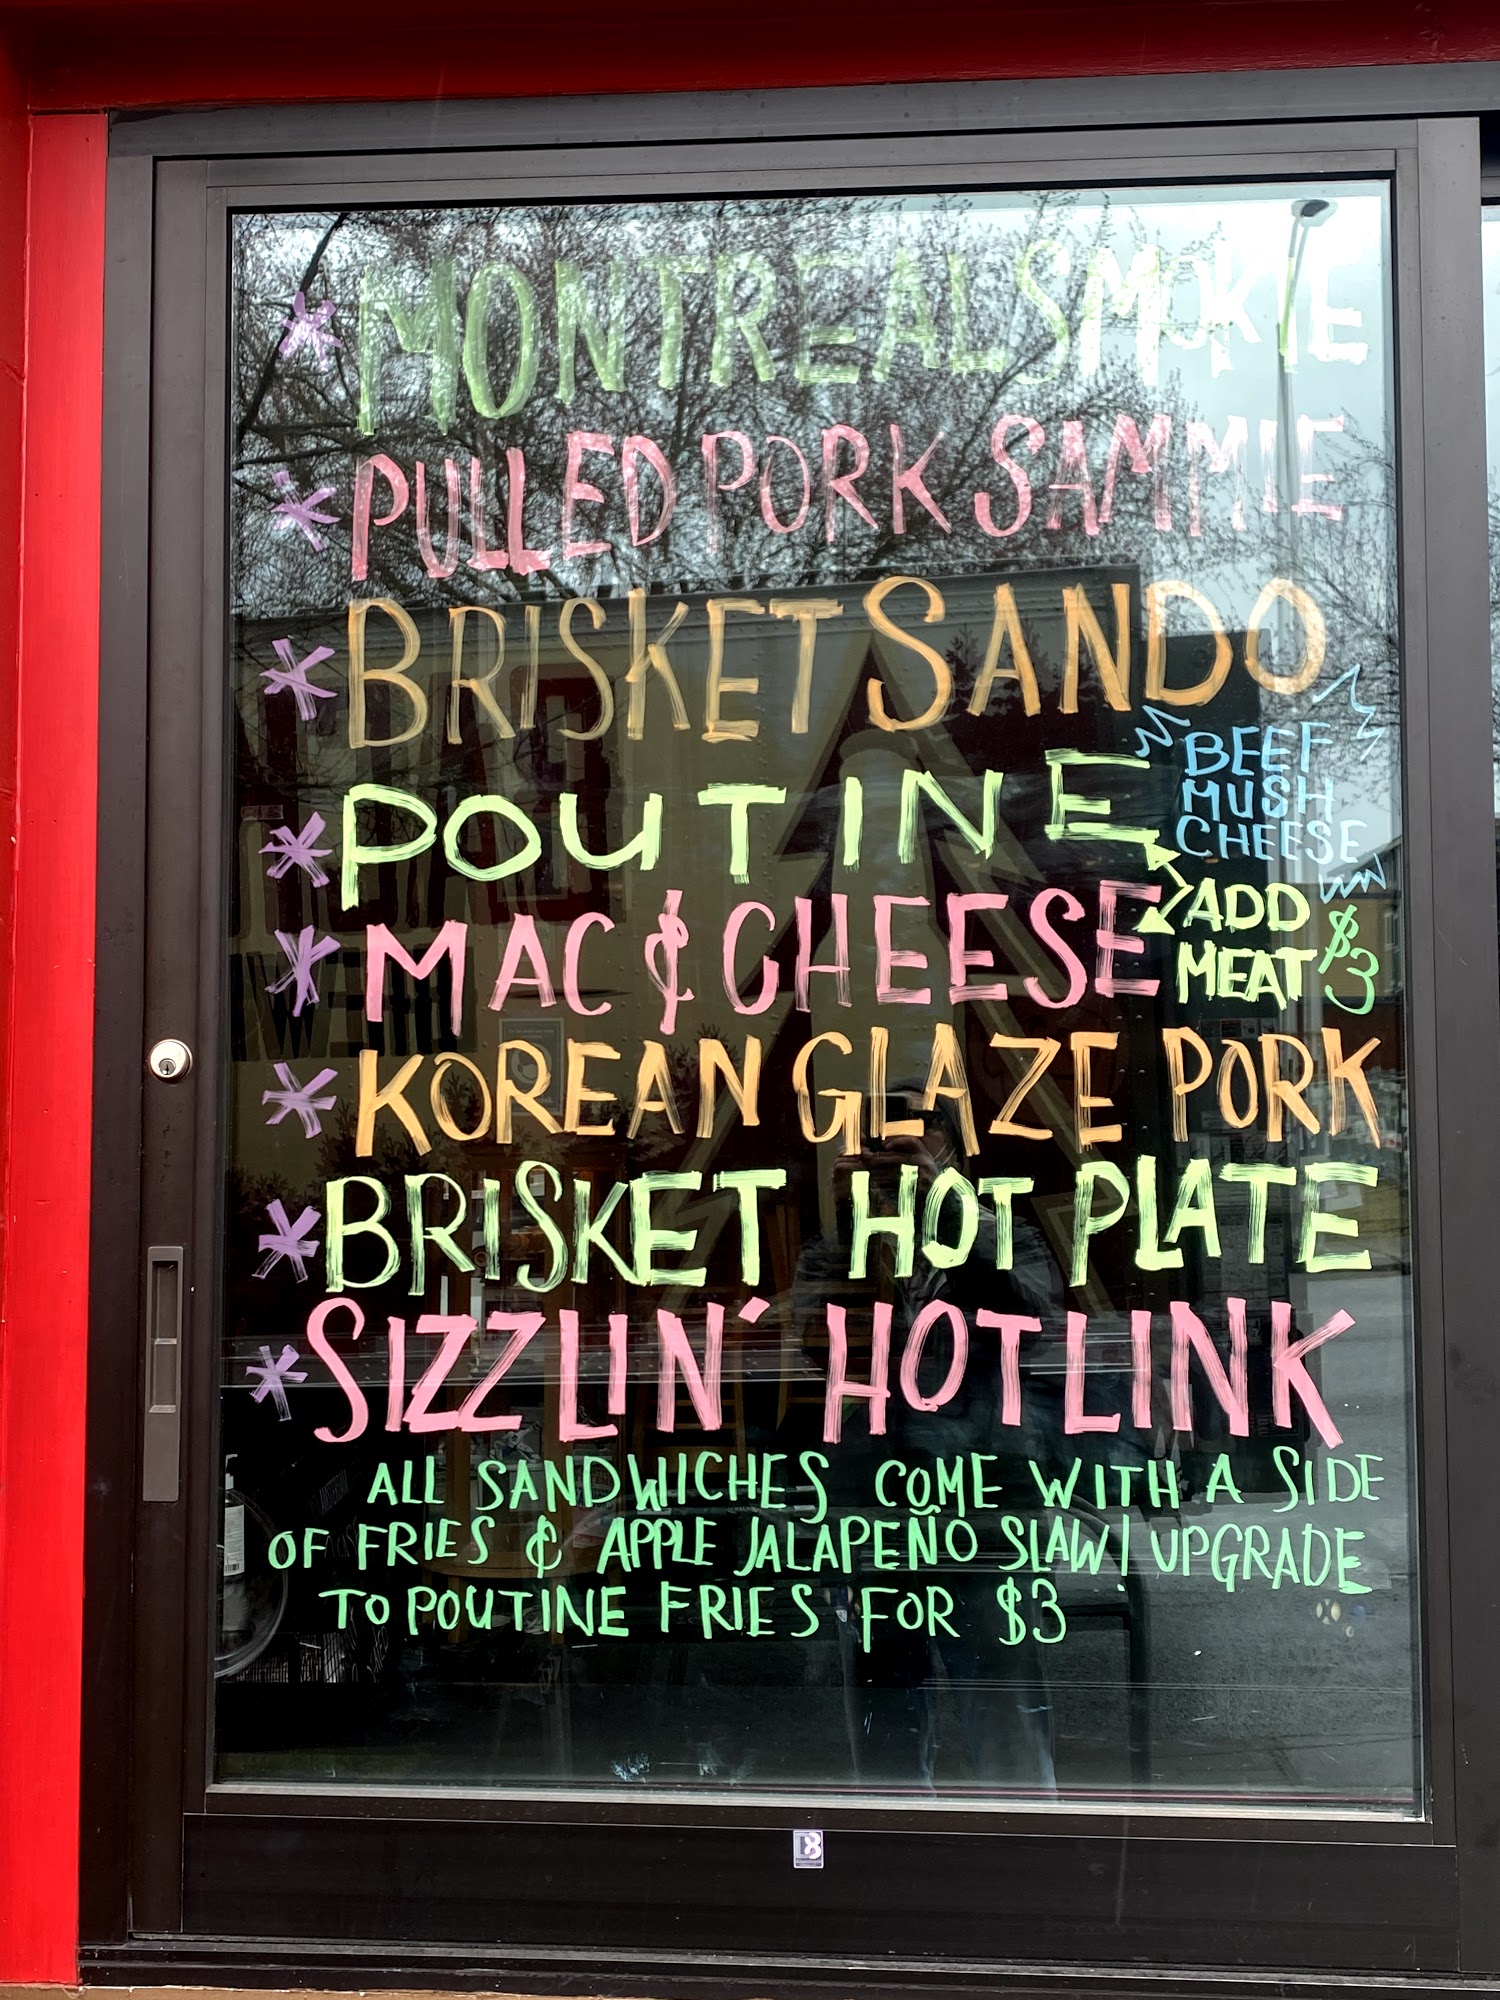 * MONTREAL SMOKIE
* PULLED PORK SAMMIE
* BRISKET SANDO
* POUTINE
BEEF
MUSH
CHEESE
* MAC & CHEESE
ADD
MEAT $3
* KOREAN GLAZE PORK
* BRISKET HOT PLATE
* SIZZLIN' HOT LINK
ALL SANDWICHES COME WITH A SIDE
OF FRIES & APPLE JALAPEÑO SLAW | UPGRADE
TO POUTINE FRIES FOR $3